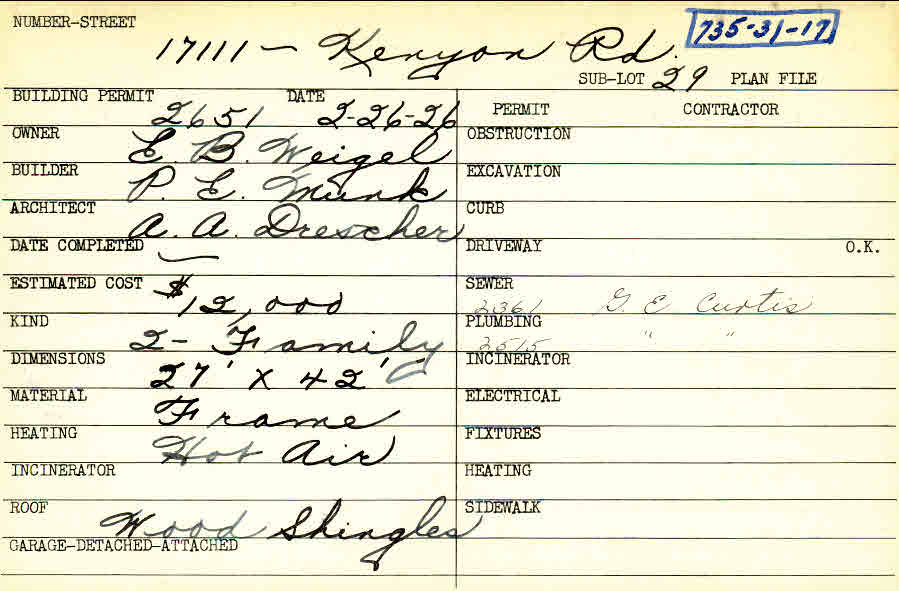 NUMBER-STREET
17111 - Kenyon Rd.
735-31-17
SUB-LOT 29 PLAN FILE
BUILDING PERMIT 2651 DATE 2-26-26
PERMIT CONTRACTOR
OWNER E. B. Weigel
OBSTRUCTION
BUILDER P. E. Munk
EXCAVATION
ARCHITECT A. A. Drescher
CURB
DATE COMPLETED —
DRIVEWAY O.K.
ESTIMATED COST $12,000
SEWER 2361 G. E. Curtis
KIND 2-Family
PLUMBING 2515 " "
DIMENSIONS 27' x 42'
INCINERATOR
MATERIAL Frame
ELECTRICAL
HEATING Hot Air
FIXTURES
INCINERATOR
HEATING
ROOF Wood Shingles
SIDEWALK
GARAGE-DETACHED-ATTACHED